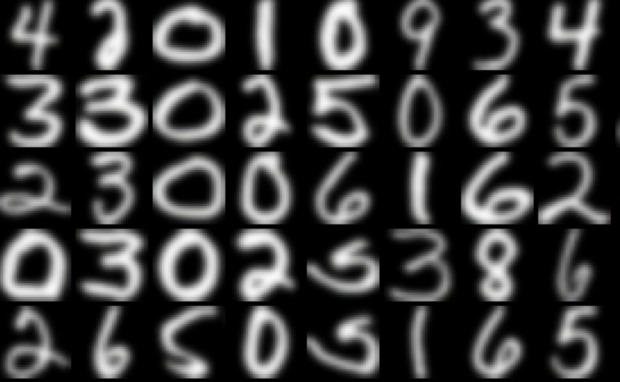 4 2 0 1 0 9 3 4
3 3 0 2 5 0 6 5
2 3 0 0 6 1 6 2
0 3 0 2 5 3 8 6
2 6 5 0 5 1 6 5